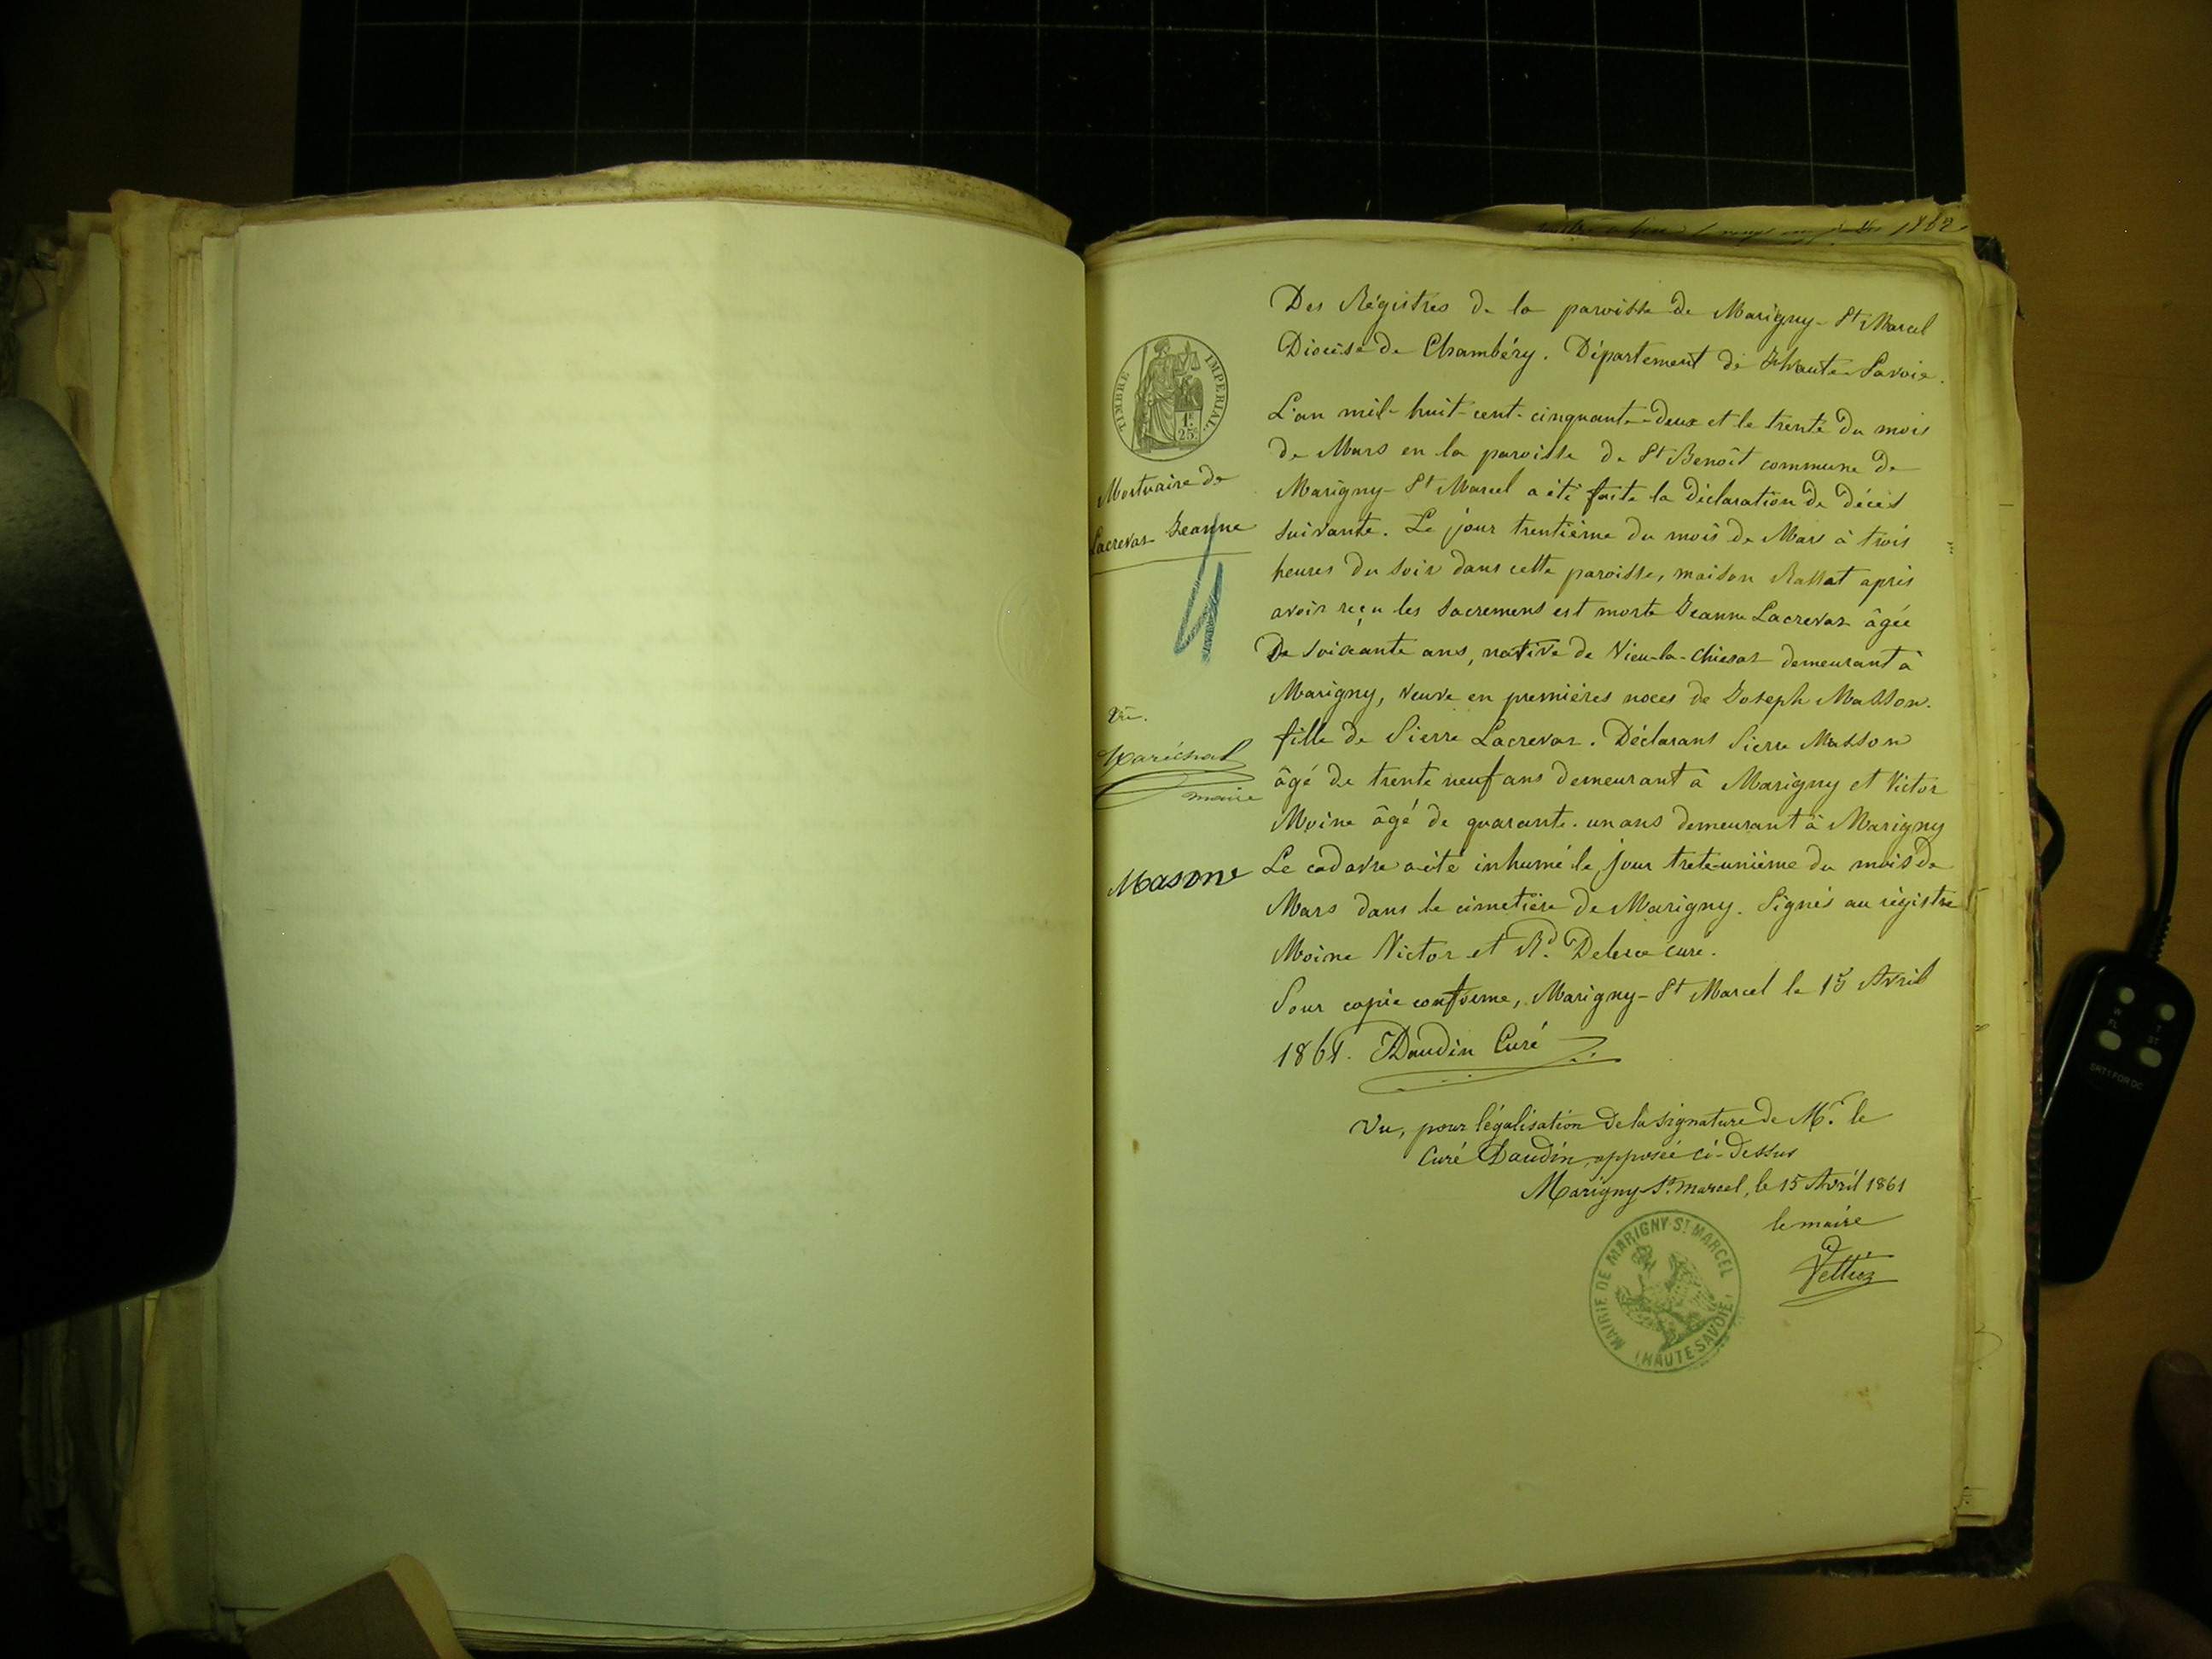 1862
Des Régistres de la paroisse de Marigny-St Marcel
Diocèse de Chambéry. Département de Haute-Savoie.
TIMBRE IMPÉRIAL
1F.
25c
L'an mil-huit-cent-cinquante-deux et le trente du mois
de Mars en la paroisse de St Benoît commune de
Mortuaire de
Marigny-St Marcel a été faite la déclaration de décès
Lacrevaz Jeanne
suivante. Le jour trentième du mois de Mars à trois
heures du soir dans cette paroisse, maison Rassat après
avoir reçu les sacremens est morte Jeanne Lacrevaz âgée
De soixante ans, native de Vieu-la-Chiesaz demeurant à
Marigny, veuve en premières noces de Joseph Masson.
Vu.
fille de Pierre Lacrevaz. Déclarans Pierre Masson
Maréchal
âgé de trente neuf ans demeurant à Marigny et Victor
maire
Moine âgé de quarante-un ans demeurant à Marigny
Masone
Le cadavre a été inhumé le jour trete-unième du mois de
Mars dans le cimetière de Marigny. Signés au régistre
Moine Victor et Rd. curé.
Pour copie conforme, Marigny-St Marcel le 15 Avril
1861. Daudin Curé
Vu, pour légalisation de la signature de Mr. le
Curé Daudin, apposée ci-dessus
Marigny-St. marcel, le 15 Avril 1861
le maire
MAIRIE DE MARIGNY-ST MARCEL
(HAUTE-SAVOIE)